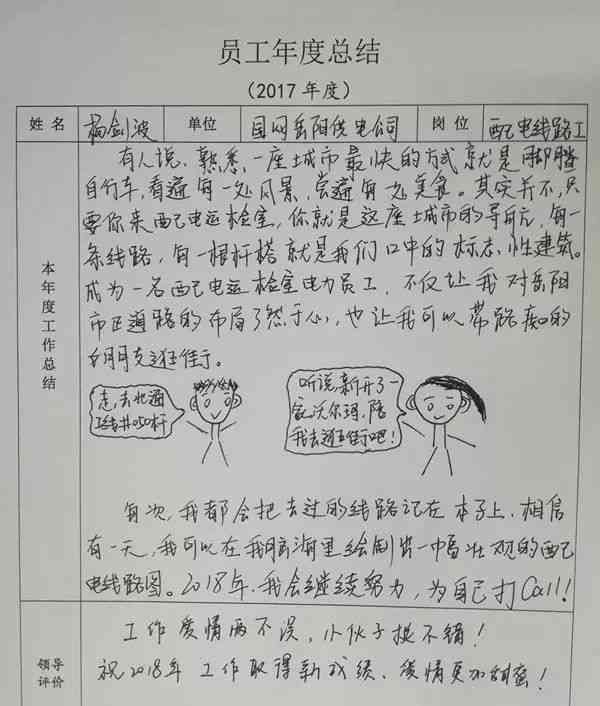 员工年度总结
(2017年度)
姓名 杨剑波 单位 国网岳阳供电公司 岗位 配电线路工
本年度工作总结
有人说,熟悉一座城市最快的方式就是脚蹬
自行车,看遍每一处风景,尝遍每一处美食。其实并不,只
要你来配电运检室,你就是这座城市的导航,每一
条线路,每一根杆塔就是我们口中的标志性建筑。
成为一名配电运检室电力员工,不仅让我对岳阳
市区道路的布局了然于心,也让我可以带路痴的
女朋友逛街。
走,去北通
I线#050杆
听说新开了一
家沃尔玛,陪
我去逛街吧!
每次,我都会把去过的线路记在本子上,相信
有一天,我可以在我脑海里绘制出一幅壮观的配
电线路图。2018年,我会继续努力,为自己打Call!
领导评价
工作爱情两不误,小伙子挺不错!
祝2018年工作取得新成绩、爱情更加甜蜜!